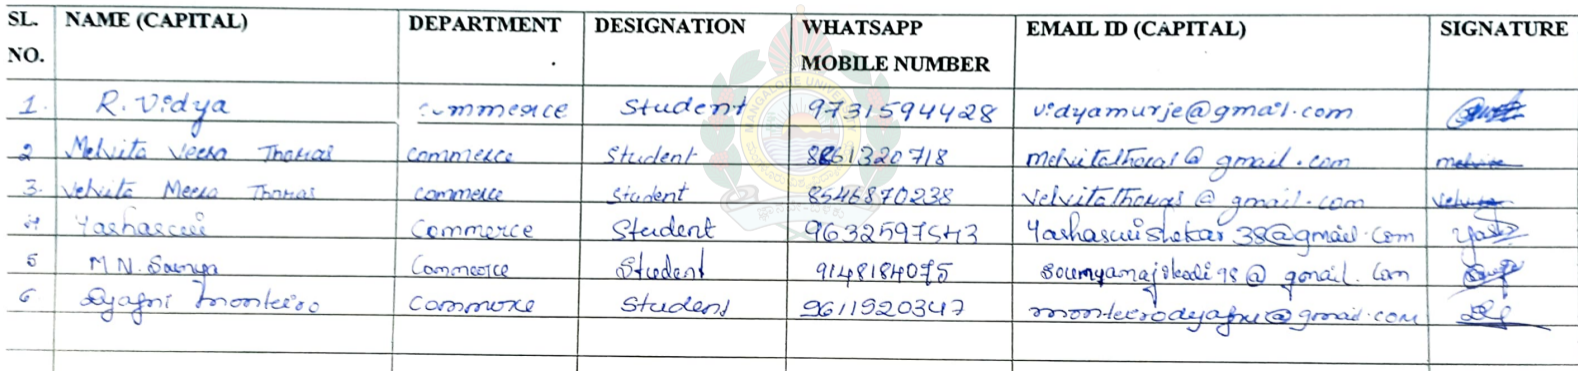 SL. NO. NAME (CAPITAL) DEPARTMENT DESIGNATION WHATSAPP MOBILE NUMBER EMAIL ID (CAPITAL) SIGNATURE
1. R. Vidya commerce Student 9731594428 vidyamurje@gmail.com
2 Melvita Veera Thomas commerce Student 8861320718 melvitathomas@gmail.com
3. Velvita Meera Thomas commerce Student 8546870238 velvitathomas@gmail.com
4 Yashaswi Commerce Student 9632597543 Yashaswishekar38@gmail.com
5 M N. Commerce Student 9148184075
6 monteiro commerce Student 9611920347
MANGALORE UNIVERSITY